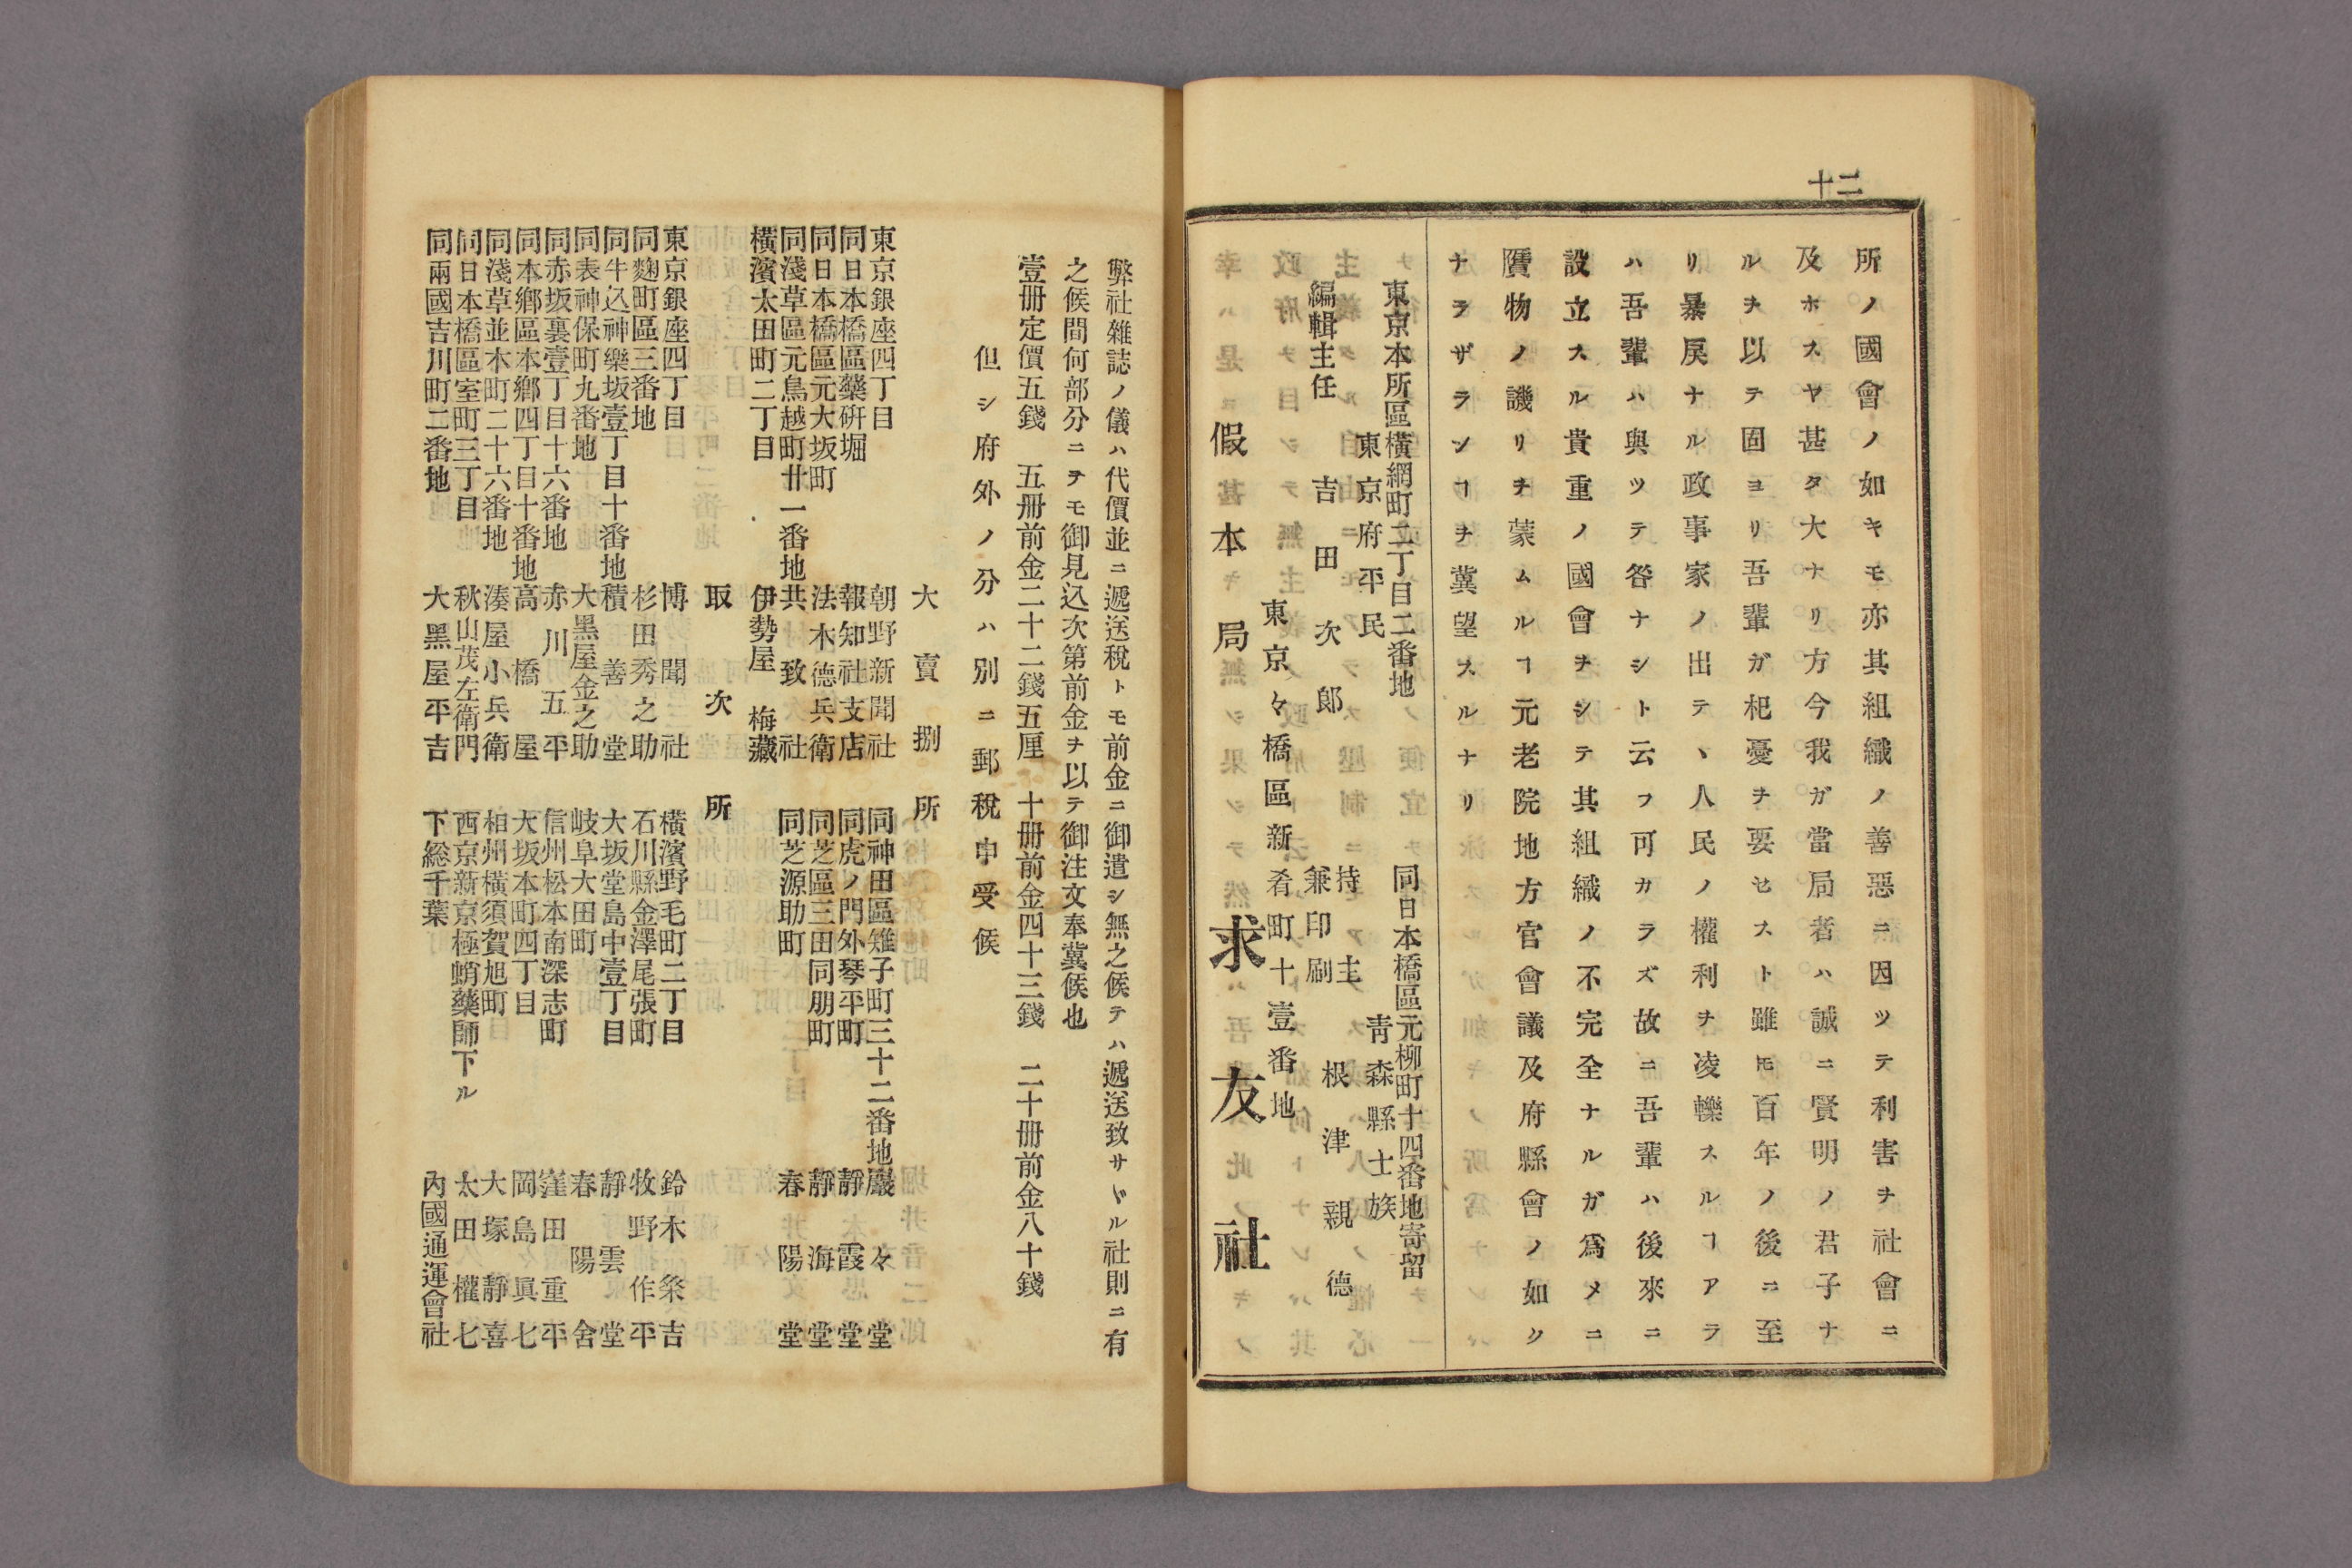 二十
所ノ國會ノ如キモ亦其組織ノ善惡ニ因ツテ利害ヲ社會ニ
及ホスヤ甚タ大ナリ方今我ガ當局者ハ誠ニ賢明ノ君子ナ
ルヲ以テ固ヨリ吾輩ガ杞憂ヲ要セスト雖モ百年ノ後ニ至
リ暴戻ナル政事家ノ出テヽ人民ノ權利ヲ凌轢スルヿアラ
ハ吾輩ハ與ツテ咎ナシト云フ可カラズ故ニ吾輩ハ後來ニ
設立スル貴重ノ國會ヲシテ其組織ノ不完全ナルガ爲メニ
贋物ノ譏リヲ蒙ムルヿ元老院地方官會議及府縣會ノ如ク
ナラザランヿヲ冀望スルナリ
東京本所區横網町二丁目二番地
東京府平民
編輯主任 吉田次郎
同日本橋區元柳町十四番地寄留
青森縣士族
持主
兼印刷 根津親德
東京々橋區新肴町十壹番地
假本局 求友社
弊社雜誌ノ儀ハ代價並ニ遞送稅トモ前金ニ御遣シ無之候テハ遞送致サヾル社則ニ有
之候間何部分ニヲモ御見込次第前金ヲ以テ御注文奉冀候也
壹册定價五錢 五册前金二十二錢五厘 十册前金四十三錢 二十册前金八十錢
但シ府外ノ分ハ別ニ郵稅申受候
大賣捌所
東京銀座四丁目 朝野新聞社 同神田區雉子町三十二番地 巖々堂
同日本橋區藥硏堀 報知社支店 同虎ノ門外琴平町 靜霞堂
同日本橋區元大坂町 法木德兵衛 同芝區三田同朋町 靜海堂
同淺草區元鳥越町廿一番地 共致社 同芝源助町 春陽堂
横濱太田町二丁目 伊勢屋梅藏
取次所
東京銀座四丁目 博聞社 横濱野毛町二丁目 鈴木桼吉
同麴町區三番地 杉田秀之助 石川縣金澤尾張町 牧野作平
同牛込神樂坂壹丁目十番地 積善堂 大坂堂島中壹丁目 靜雲堂
同表神保町九番地 大黑屋金之助 岐阜大田町 春陽舍
同赤坂裏壹丁目十六番地 赤川五平 信州松本南深志町 窪田重平
同本鄕區本鄕四丁目十番地 高橋屋 大坂本町四丁目 岡島眞七
同淺草並木町二十六番地 湊屋小兵衛 相州橫須賀旭町 大塚靜喜
同日本橋區室町三丁目 秋山茂左衛門 西京新京極蛸藥師下ル 太田權七
同兩國吉川町二番地 大黑屋平吉 下総千葉 內國通運會社